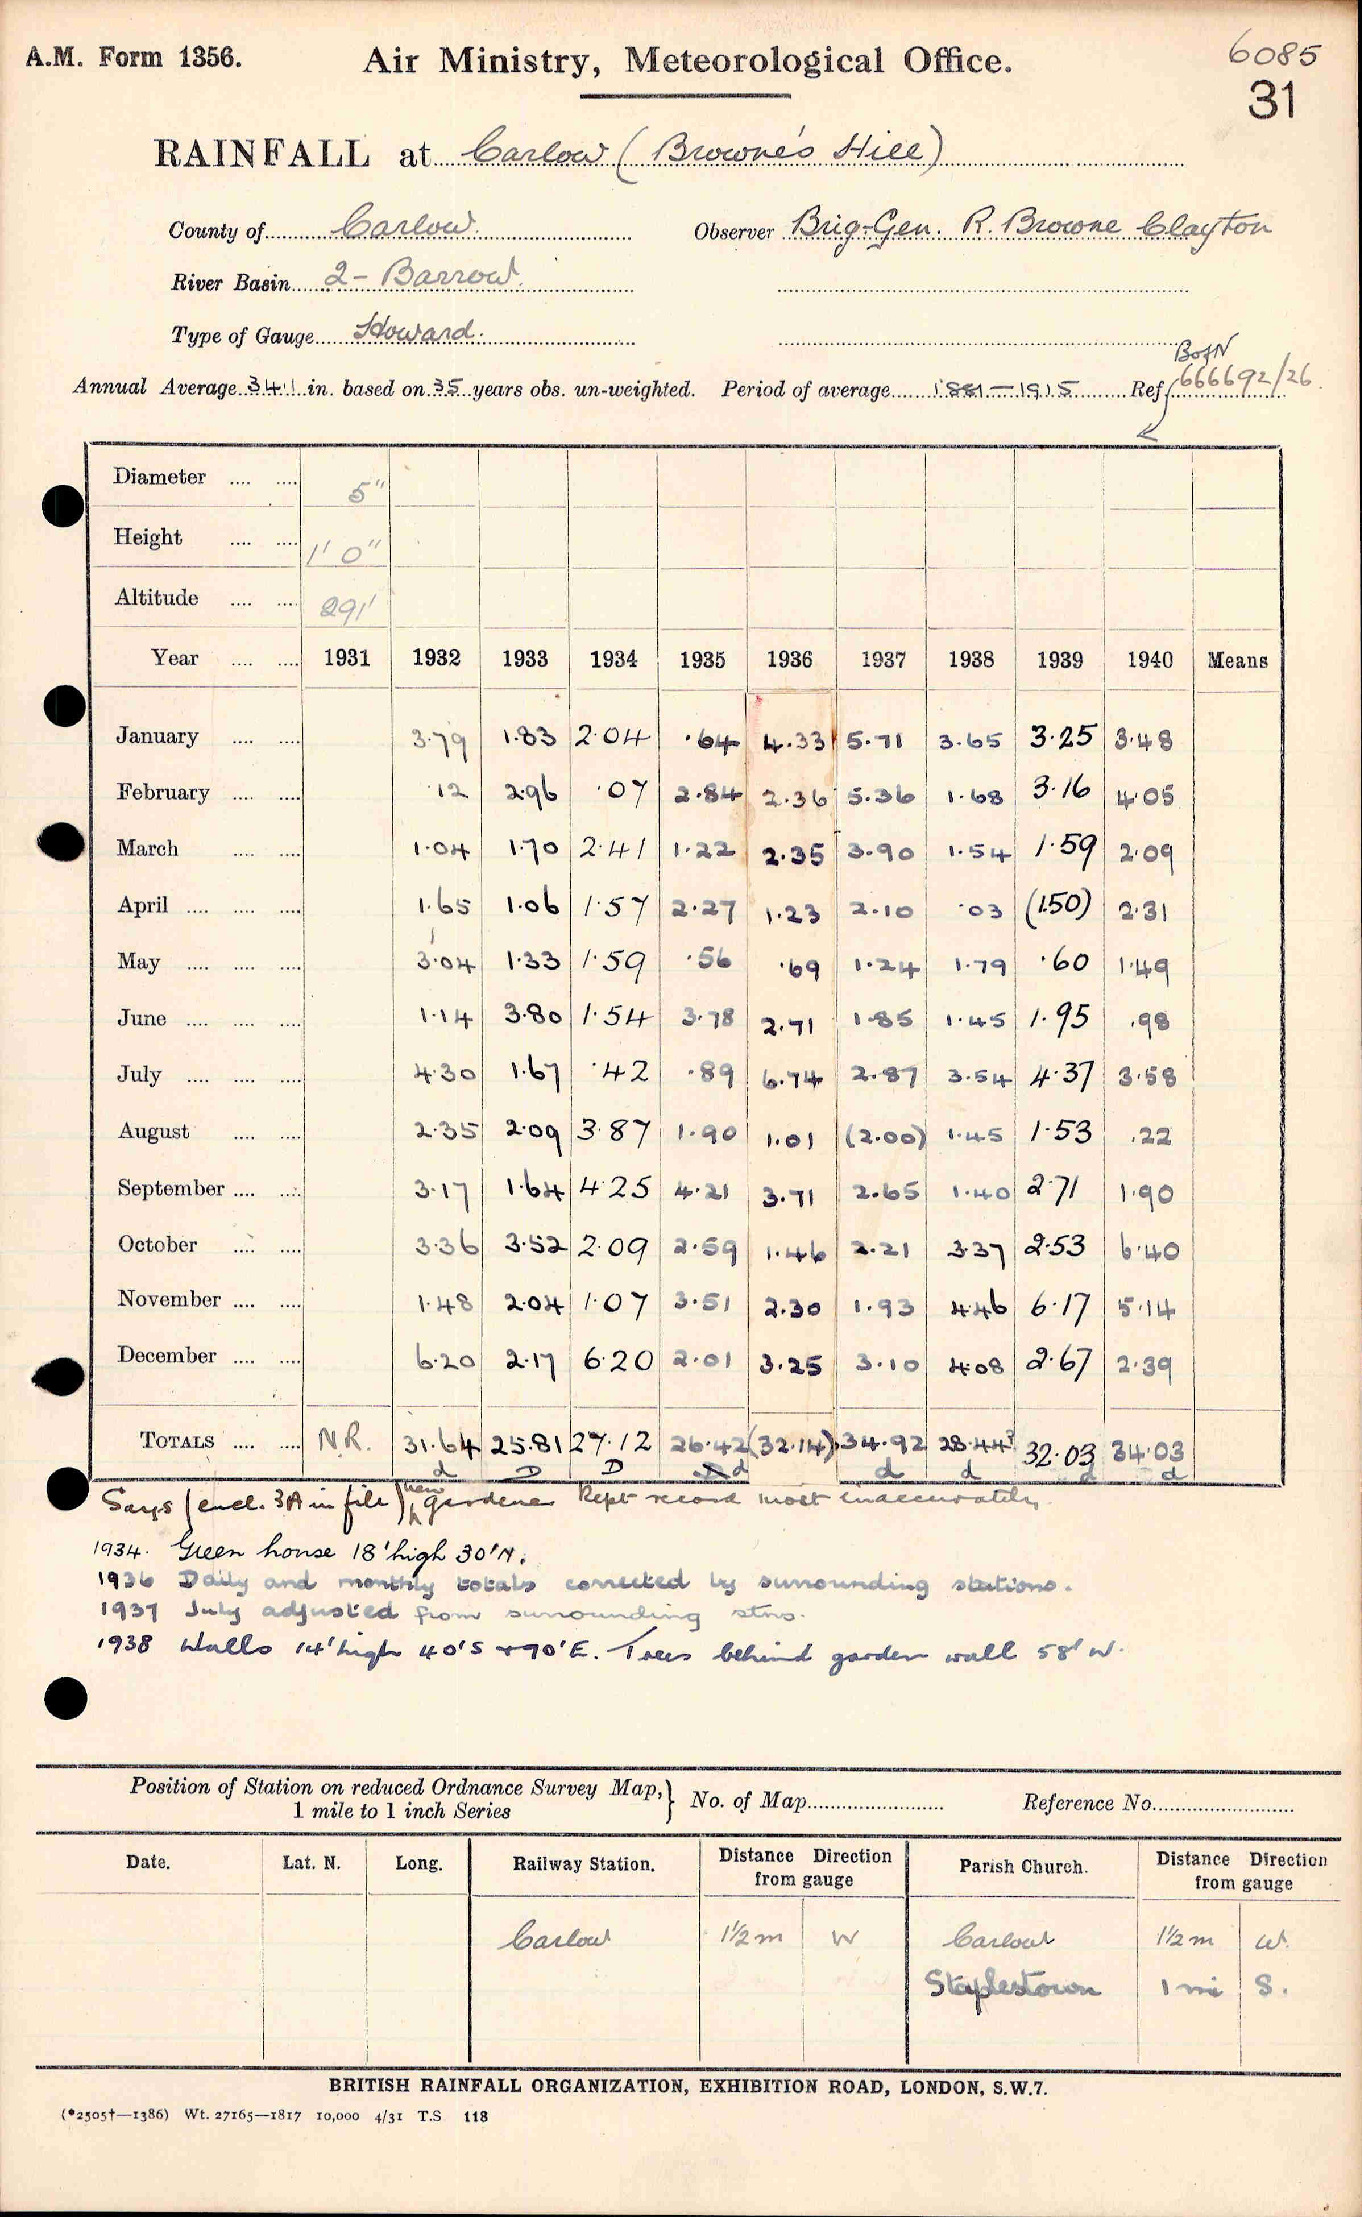 A.M. Form 1356. Air Ministry, Meteorological Office. 6085
31
RAINFALL at Carlow (Browne's Hill)
County of Carlow. Observer Brig-Gen. R. Browne Clayton
River Basin 2- Barrow.
Type of Gauge Howard.
Annual Average 34.1 in. based on 35 years obs. un-weighted. Period of average 1881-1915 Ref 666692/26.
Diameter .... .... 5"
Height .... .... 1' 0"
Altitude .... .... 291'
Year .... .... 1931 1932 1933 1934 1935 1936 1937 1938 1939 1940 Means
January .... .... 3.79 1.83 2.04 .64 4.33 5.71 3.65 3.25 3.48
February .... .... .12 2.96 .07 2.84 2.36 5.36 1.68 3.16 4.05
March .... .... 1.04 1.70 2.41 1.22 2.35 3.90 1.54 1.59 2.09
April .... .... .... 1.65 1.06 1.57 2.27 1.23 2.10 .03 (1.50) 2.31
May .... .... .... 3.04 1.33 1.59 .56 .69 1.24 1.79 .60 1.49
June .... .... .... 1.14 3.80 1.54 3.78 2.71 1.85 1.45 1.95 .98
July .... .... .... 4.30 1.67 .42 .89 6.74 2.87 3.54 4.37 3.58
August .... .... 2.35 2.09 3.87 1.90 1.01 (2.00) 1.45 1.53 .22
September .... .... 3.17 1.64 4.25 4.21 3.71 2.65 1.40 2.71 1.90
October .... .... 3.36 3.52 2.09 2.59 1.46 2.21 3.37 2.53 6.40
November .... .... 1.48 2.04 1.07 3.51 2.30 1.93 4.46 6.17 5.14
December .... .... 6.20 2.17 6.20 2.01 3.25 3.10 4.08 2.67 2.39
TOTALS .... .... N.R. 31.64 25.81 27.12 26.42 (32.14) 34.92 28.44 32.03 34.03
d D D d d d d d
Says (encl. 3A in file) new gardener kept record most inaccurately.
1934. Green house 18' high 30' N.
1936 Daily and monthly totals corrected by surrounding stations.
1937 July adjusted from surrounding stns.
1938 Walls 14' high 40' S + 90' E. Trees behind garden wall 58' W.
Position of Station on reduced Ordnance Survey Map, } No. of Map Reference No.
1 mile to 1 inch Series
Date. Lat. N. Long. Railway Station. Distance Direction from gauge Parish Church. Distance Direction from gauge
Carlow 1½ m W Carlow 1½ m W.
Staplestown 1 mi S.
BRITISH RAINFALL ORGANIZATION, EXHIBITION ROAD, LONDON, S.W.7.
(*2505†—1386) Wt. 27165—1817 10,000 4/31 T.S 118